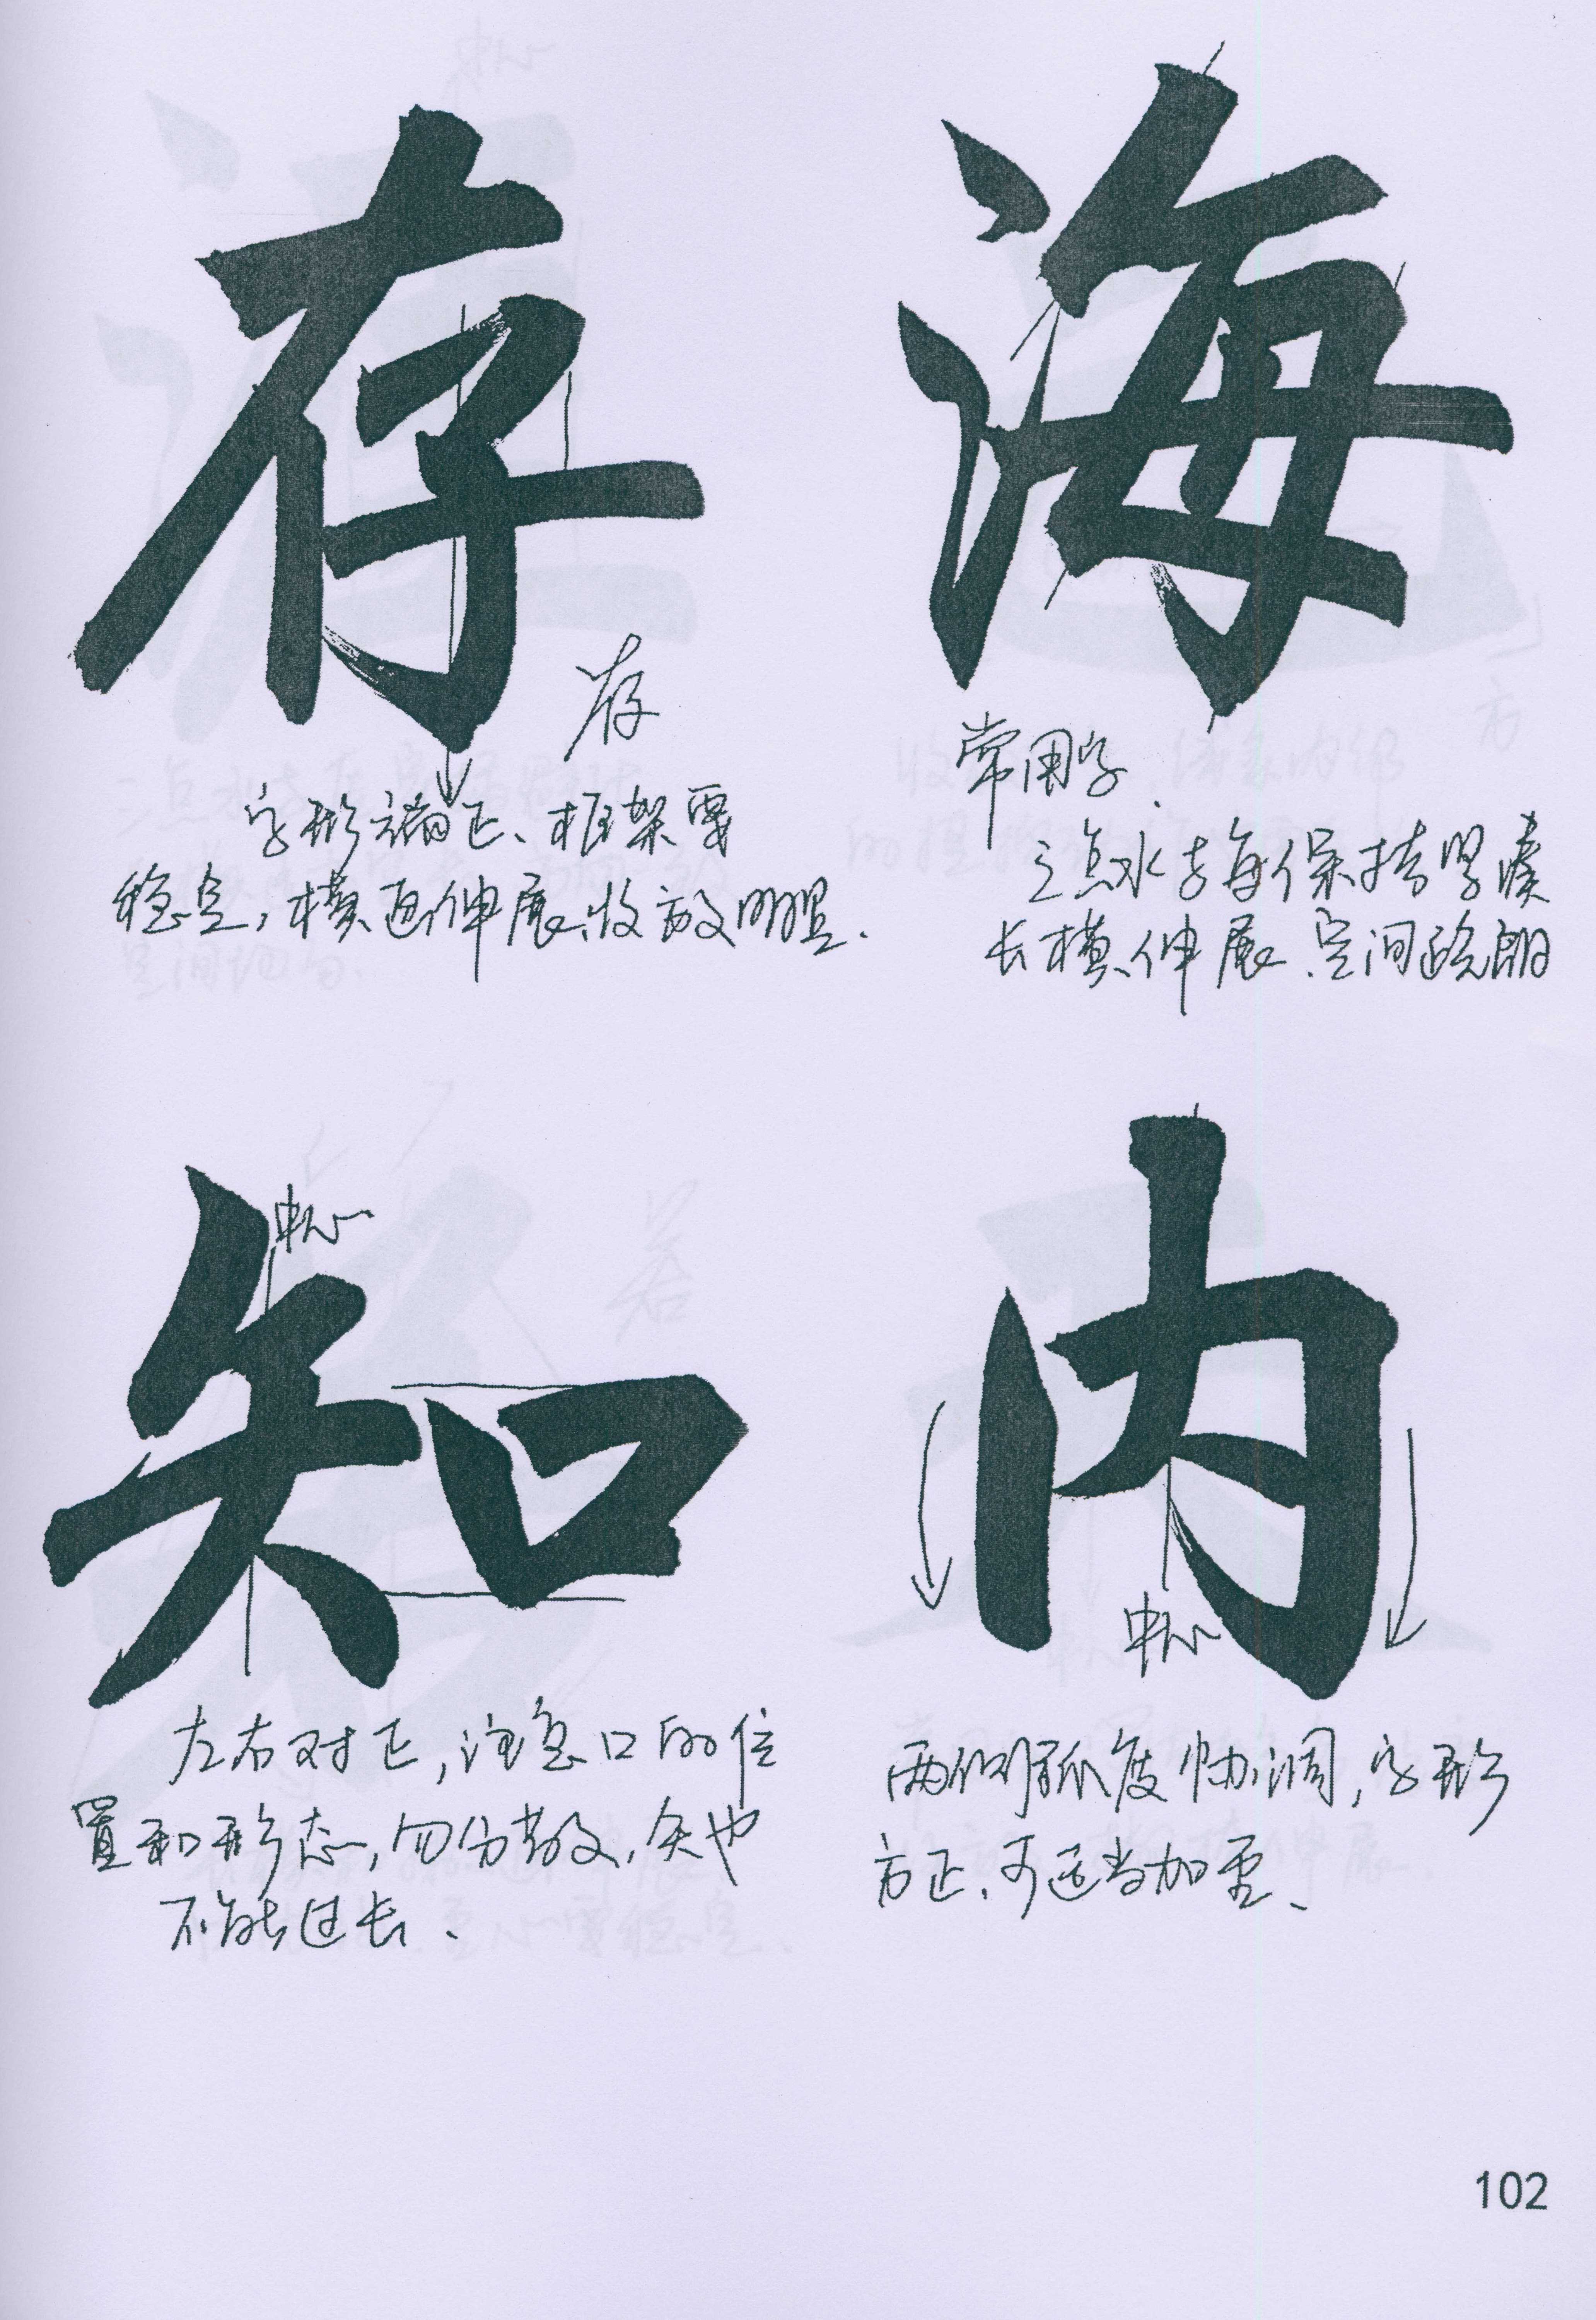 存
存
字形端正、框架要
稳定，横画伸展，收放明显.
海
常用字.
三点水与每保持紧凑
长横伸展.空间疏朗
知
中心
左右对正，注意口的位
置和形态，勿分散，矢也
不能过长.
内
中心
两侧弧度协调，字形
方正.可适当加重、
102